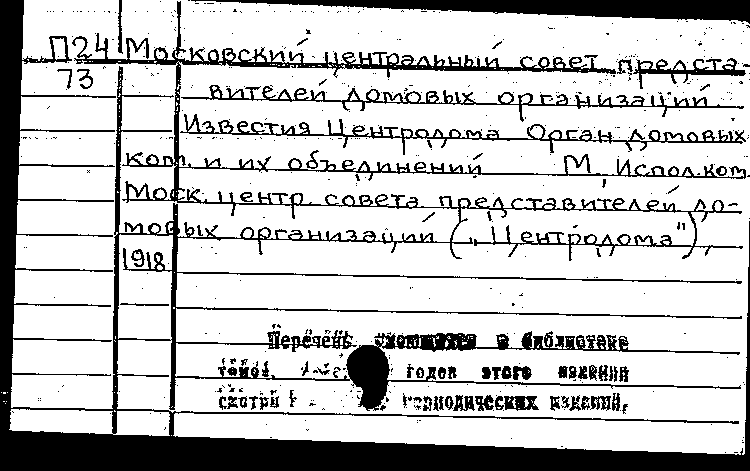 П24 Московский центральный совет предста-
73 вителей домовых организаций.
Известия Центродома. Орган домовых
ком. и их объединений М., Испол.ком.
Моск. центр. совета представителей до-
мовых организаций ("Центродома"),
1918
Перечень имеющихся в библиотеке
томов, годов этого издания
смотри периодических изданий.